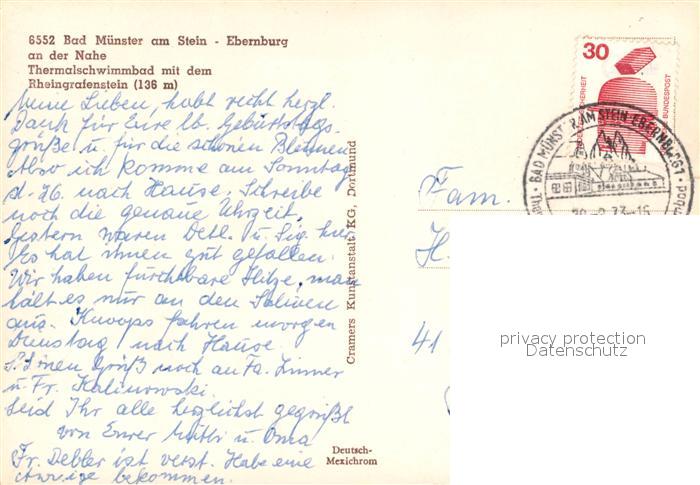 6552 Bad Münster am Stein - Ebernburg
an der Nahe
Thermalschwimmbad mit dem
Rheingrafenstein (136 m)
Meine Lieben, habt recht herzl.
Dank für Eure lb. Geburtstags-
grüße u. für die schönen Blumen.
Also ich komme am Sonntag
d. 26. nach Hause. Schreibe
noch die genaue Uhrzeit.
Gestern waren Detl. u. Sig. hier
Es hat ihnen gut gefallen.
Wir haben furchtbare Hitze, man
hält es nur an den Salinen
aus. Knoops fahren morgen
Dienstag nach Hause.
Schönen Gruß noch an Fa. Zimmer
u. Fr. Kalinowski.
Seid Ihr alle herzlichst gegrüßt
von Eurer Mutti u. Oma
Fr. Debler ist verst. Habe eine
bekommen.
Cramers Kunstanstalt KG, Dortmund
Deutsch-
Mexichrom
30
BUNDESPOST
BAD MÜNSTER AM STEIN-EBERNBURG 1
Fam.
H.
41
privacy protection
Datenschutz